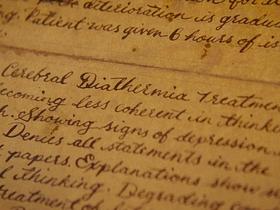 deterioration is gradu
g. Patient was given 6 hours of is
Cerebral Diathermia Treatme
ecoming less coherent in thinki
h. Showing signs of depression
Denies all statements in the
papers. Explanations show
l thinking. Degrading con
treatment of